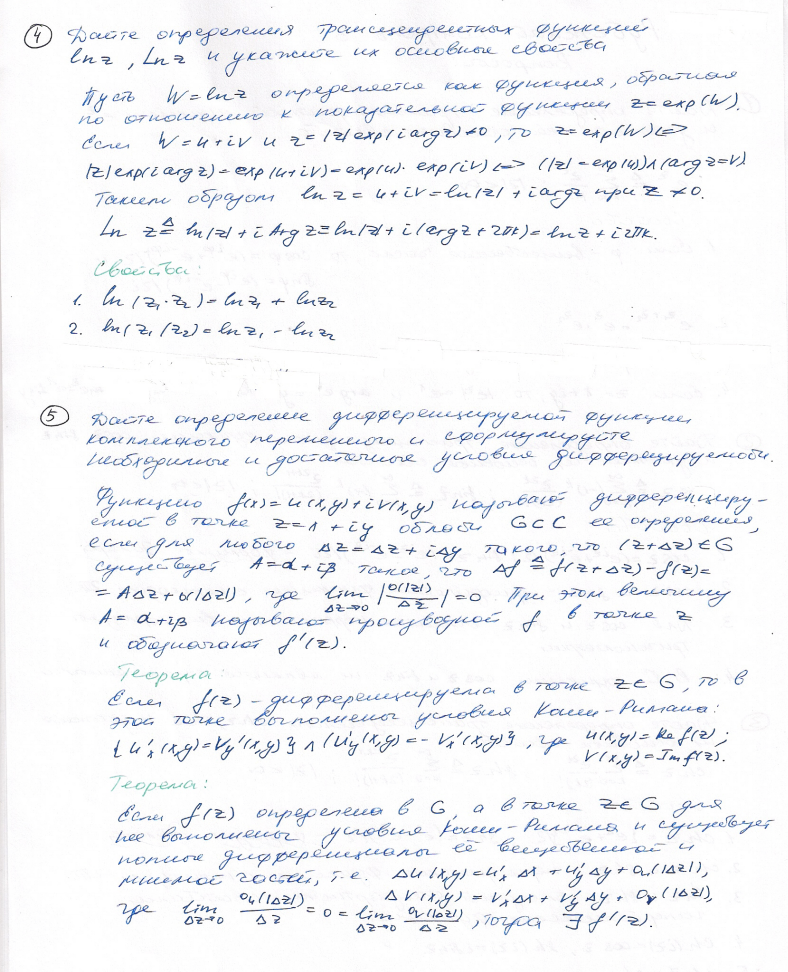 4 Дайте определения трансцендентных функций
ln z, Ln z и укажите их основные свойства
Пусть W = ln z определяется как функция, обратная
по отношению к показательной функции z = exp(W).
Если W = u + iv и z = |z| exp(i arg z) ≠ 0, то z = exp(W) <=>
|z| exp(i arg z) = exp(u + iv) = exp(u) · exp(iv) <=> (|z| = exp u) ∧ (arg z = v)
Таким образом ln z = u + iv = ln|z| + i arg z при z ≠ 0.
Ln z ≜ ln|z| + i Arg z ≡ ln|z| + i(arg z + 2πk) = ln z + i2πk.
Свойства:
1. ln(z₁ · z₂) = ln z₁ + ln z₂
2. ln(z₁ / z₂) = ln z₁ - ln z₂
5 Дайте определение дифференцируемой функции
комплексного переменного и сформулируйте
необходимые и достаточные условия дифферецируемости.
Функцию f(x) = u(x,y) + iv(x,y) называют дифференциру-
емой в точке z = x + iy области G ⊂ C ее определения,
если для любого Δz = Δz + iΔy такого, что (z + Δz) ∈ G
существует A = α + iβ такое, что Δf ≜ f(z + Δz) - f(z) =
= AΔz + o(|Δz|), где lim Δz→0 |o(|z|)/Δz| = 0 При этом величину
A = α + iβ называют производной f в точке z
и обозначают f'(z).
Теорема:
Если f(z) - дифференцируема в точке z ∈ G, то в
этой точке выполнены условия Коши-Римана:
{u'x(x,y) = Vy'(x,y)} ∧ {u'y(x,y) = - Vx'(x,y)}, где u(x,y) = Re f(z);
V(x,y) = Im f(z).
Теорема:
Если f(z) определена в G, а в точке z ∈ G для
нее выполнены условия Коши-Римана и существует
полные дифференциалы её вещественной и
мнимой частей, т.е. Δu(x,y) = u'x Δx + u'y Δy + oᵤ(|Δz|),
ΔV(x,y) = V'x Δx + V'y Δy + oᵥ(|Δz|),
где lim Δz→0 oᵤ(|Δz|)/Δz = 0 = lim Δz→0 oᵥ(|Δz|)/Δz, тогда ∃ f'(z).